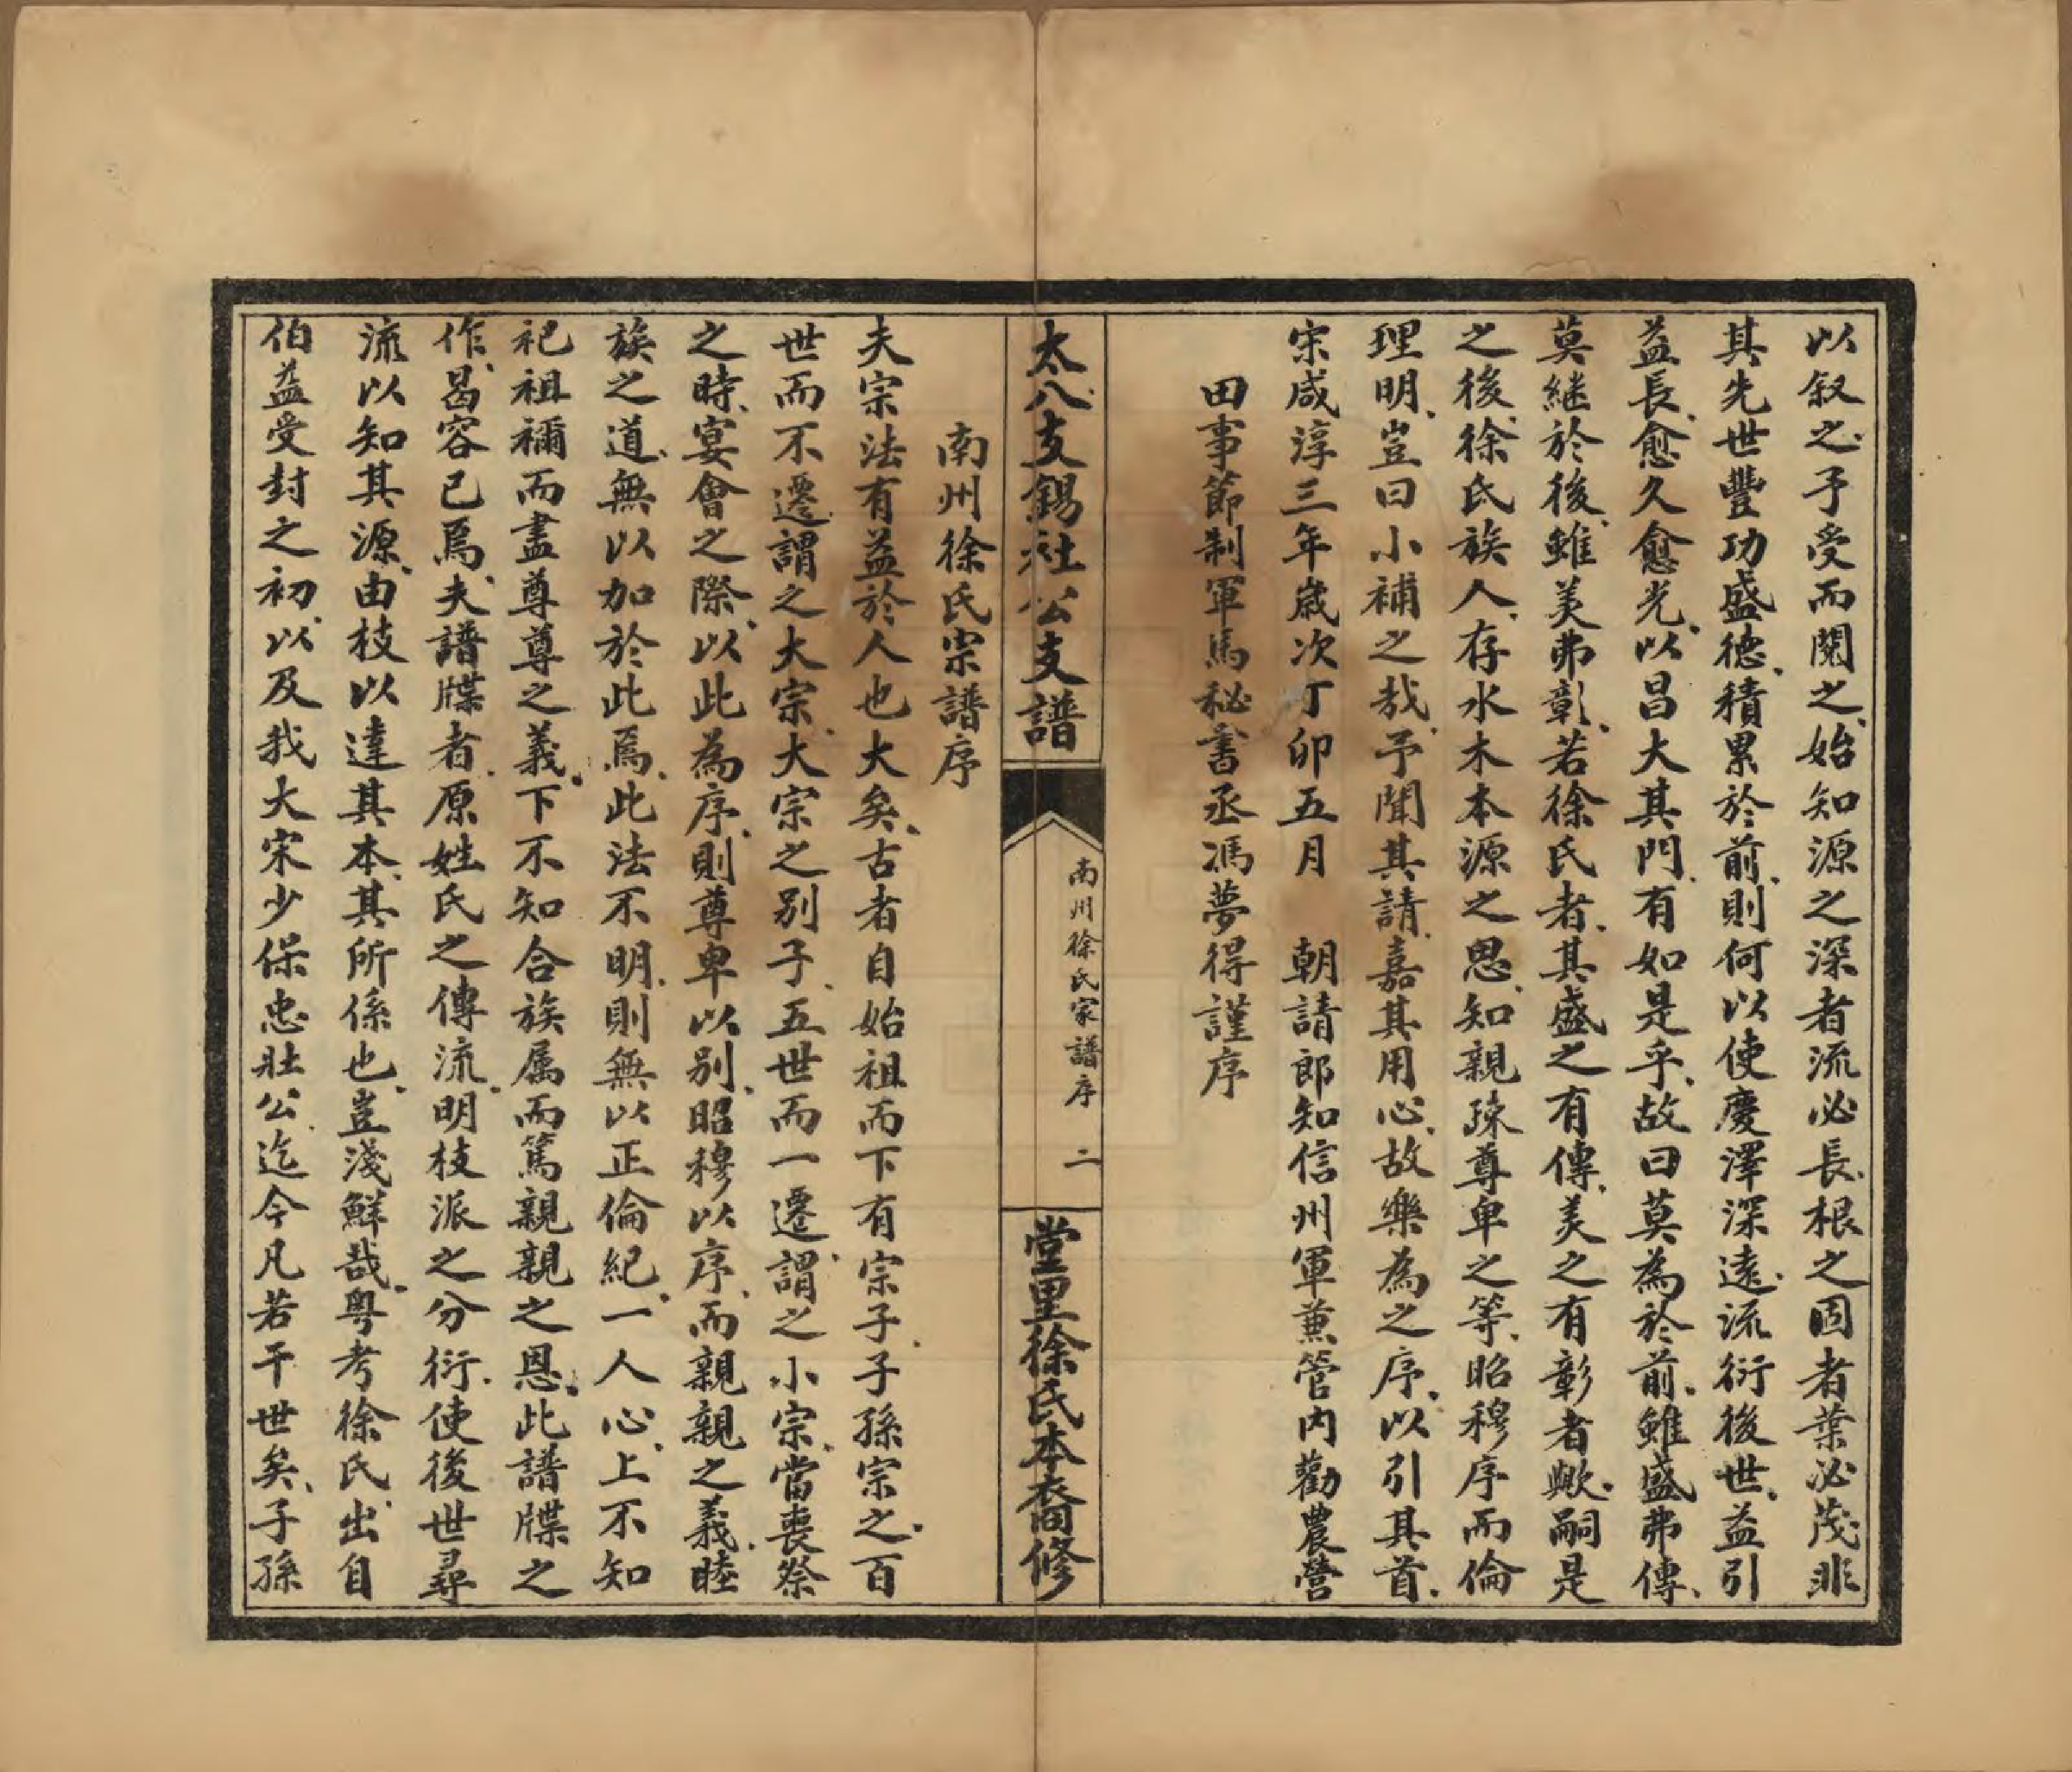 以叙之予受而閱之始知源之深者流必長根之固者葉必茂非
其先世豐功盛德積累於前則何以使慶澤深遠流衍後世益引
益長愈久愈光以昌大其門有如是乎故曰莫為於前雖盛弗傳
莫継於後雖美弗彰若徐氏者其盛之有傳美之有彰者歟嗣是
之後徐氏族人存水木本源之思知親疎尊卑之等昭穆序而倫
理明豈曰小補之哉予聞其請嘉其用心故樂為之序以引其首
宋咸淳三年歲次丁卯五月　朝請郎知信州軍蕙管內勸農營
田事節制軍馬秘書丞馮夢得謹序
太八支錫社公支譜
南州徐氏家譜序　二
堂里徐氏本裔修
南州徐氏宗譜序
夫宗法有益於人也大矣古者自始祖而下有宗子子孫宗之百
世而不遷謂之大宗大宗之別子五世而一遷謂之小宗當喪祭
之時宴會之際以此為序則尊卑以別昭穆以序而親親之義睦
族之道無以加於此焉此法不明則無以正倫紀一人心上不知
祀祖禰而盡尊尊之義下不知合族属而篤親親之恩此譜牒之
作曷容已焉夫譜牒者原姓氏之傳流明枝派之分衍使後世尋
流以知其源由枝以達其本其所係也豈淺鮮哉粵考徐氏出自
伯益受封之初以及我大宋少保忠壯公迄今凡若干世矣子孫